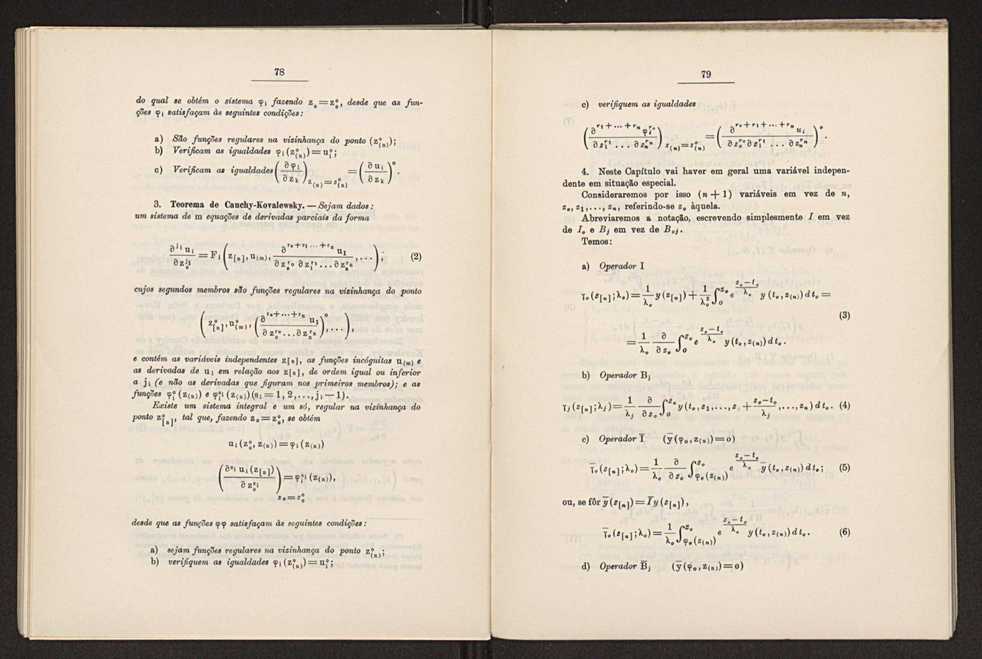 78
do qual se obtém o sistema φᵢ fazendo z₀ = z₀°, desde que as fun-
ções φᵢ satisfaçam às seguintes condições:
a) São funções regulares na vizinhança do ponto (z°₍ₙ₎);
b) Verificam as igualdades φᵢ(z°₍ₙ₎) = uᵢ°;
c) Verificam as igualdades (∂φᵢ/∂zₖ)z₍ₙ₎=z°₍ₙ₎ = (∂uᵢ/∂zₖ)°.
3. Teorema de Cauchy-Kovalewsky. — Sejam dados:
um sistema de m equações de derivadas parciais da forma
(2)
cujos segundos membros são funções regulares na vizinhança do ponto
e contém as variáveis independentes z[ₙ], as funções incógnitas u₍ₘ₎ e
as derivadas de uᵢ em relação aos z[ₙ], de ordem igual ou inferior
a jᵢ (e não as derivadas que figuram nos primeiros membros); e as
funções φᵢ°(z₍ₙ₎) e φᵢˢⁱ(z₍ₙ₎)(sᵢ = 1, 2, ..., jᵢ — 1).
Existe um sistema integral e um só, regular na vizinhança do
ponto z°[ₙ], tal que, fazendo z₀ = z₀°, se obtém
uᵢ(z₀°, z₍ₙ₎) = φᵢ(z₍ₙ₎)
(∂ˢⁱ uᵢ(z[ₙ])/∂z₀ˢⁱ)z₀=z₀° = φᵢˢⁱ(z₍ₙ₎),
desde que as funções φφ satisfaçam às seguintes condições:
a) sejam funções regulares na vizinhança do ponto z°₍ₙ₎;
b) verifiquem as igualdades φᵢ(z°₍ₙ₎) = uᵢ°;
79
c) verifiquem as igualdades
4. Neste Capítulo vai haver em geral uma variável indepen-
dente em situação especial.
Consideraremos por isso (n + 1) variáveis em vez de n,
z₀, z₁, ..., zₙ, referindo-se z₀ àquela.
Abreviaremos a notação, escrevendo simplesmente I em vez
de I₀ e Bⱼ em vez de B₀ⱼ.
Temos:
a) Operador I
γ₀(z[ₙ]; λ₀) = 1/λ₀ y(z[ₙ]) + 1/λ₀² ∫₀^z₀ e^((z₀−t₀)/λ₀) y(t₀, z₍ₙ₎) dt₀ =
(3)
= 1/λ₀ ∂/∂z₀ ∫₀^z₀ e^((z₀−t₀)/λ₀) y(t₀, z₍ₙ₎) dt₀.
b) Operador Bⱼ
γⱼ(z[ₙ]; λⱼ) = 1/λⱼ ∂/∂z₀ ∫₀^z₀ y(t₀, z₁, ..., zⱼ + (z₀−t₀)/λⱼ, ..., zₙ) dt₀. (4)
c) Operador I̅ (y̅(φ₀, z₍ₙ₎) = o)
γ̅₀(z[ₙ]; λ₀) = 1/λ₀ ∂/∂z₀ ∫_φ₀(z₍ₙ₎)^z₀ e^((z₀−t₀)/λ₀) y̅(t₀, z₍ₙ₎) dt₀; (5)
ou, se fôr y̅(z[ₙ]) = I̅y(z[ₙ]),
γ̅₀(z[ₙ]; λ₀) = 1/λ₀ ∫_φ₀(z₍ₙ₎)^z₀ e^((z₀−t₀)/λ₀) y(t₀, z₍ₙ₎) dt₀. (6)
d) Operador B̅ⱼ (y̅(φ₀, z₍ₙ₎) = o)